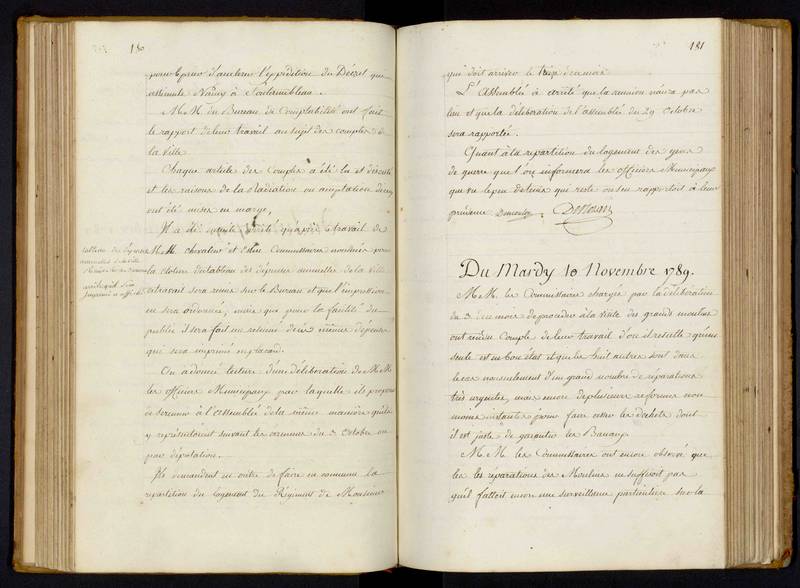 180
pour le prier d'accelerer l'expedition du Décret que
assimile Nancy à Fontainebleau.
M.M. du Bureau de Comptabilité ont fait
le rapport de leur travail au sujet des comptes de
la Ville
Chaque article des Comptes a été lu et discuté
et les raisons de la Radiation ou
ont été mises en marge,
Il a été ensuite arrêté qu'après le travail de
M.M. chevalier et Commissaires nommés pour
la cloture du tableau des depenses annuelles de la Ville
ce travail sera remis sur le Bureau et que l'impression
en sera ordonnée, mais que pour la facilité du
public il sera fait un resumé de ces mêmes depenses
qui sera imprimé en placard.
On a donné lecture d'une déliberation de M.M.
les officiers Municipaux par laquelle ils proposent
de se reunir à l'assemblée de la même manière qu'ils
y représentoient suivant les du 3 Octobre ou
par députation.
Ils demandent en outre de faire en commun la
repartition du logement du Régiment de Monsieur
tableau des depenses
annuelles de la ville
imprimé et affiché
181
qui doit arriver le treize de ce mois
L'Assemblée a arrêté que la reunion n'aura pas
lieu et que la déliberation de l'assemblée du 29 Octobre
sera rapportée.
Quant à la repartition du logement des gens
de guerre que l'on informera les officiers Municipaux
que vu le peu de tems qui reste on s'en rapportoit à leur
prudence
Du Mardy 10 Novembre 1789.
M.M. les Commissaires chargés par la déliberation
du 3 de ce mois de proceder à la Visite des grands moulins
ont rendu Compte de leur travail d'où il resulte qu'une
seule est en bon état et que les huit autres sont dans
le cas non seulement d'un grand nombre de réparations
très urgentes, mais encore de plusieurs reformes non
moins instantes pour faire cesser les déchets dont
il est juste de garantir les Banaux
M.M. les Commissaires ont encore observé que
les les réparations des Moulins ne suffisoit pas
qu'il falloit encore une surveillance particulière sur la